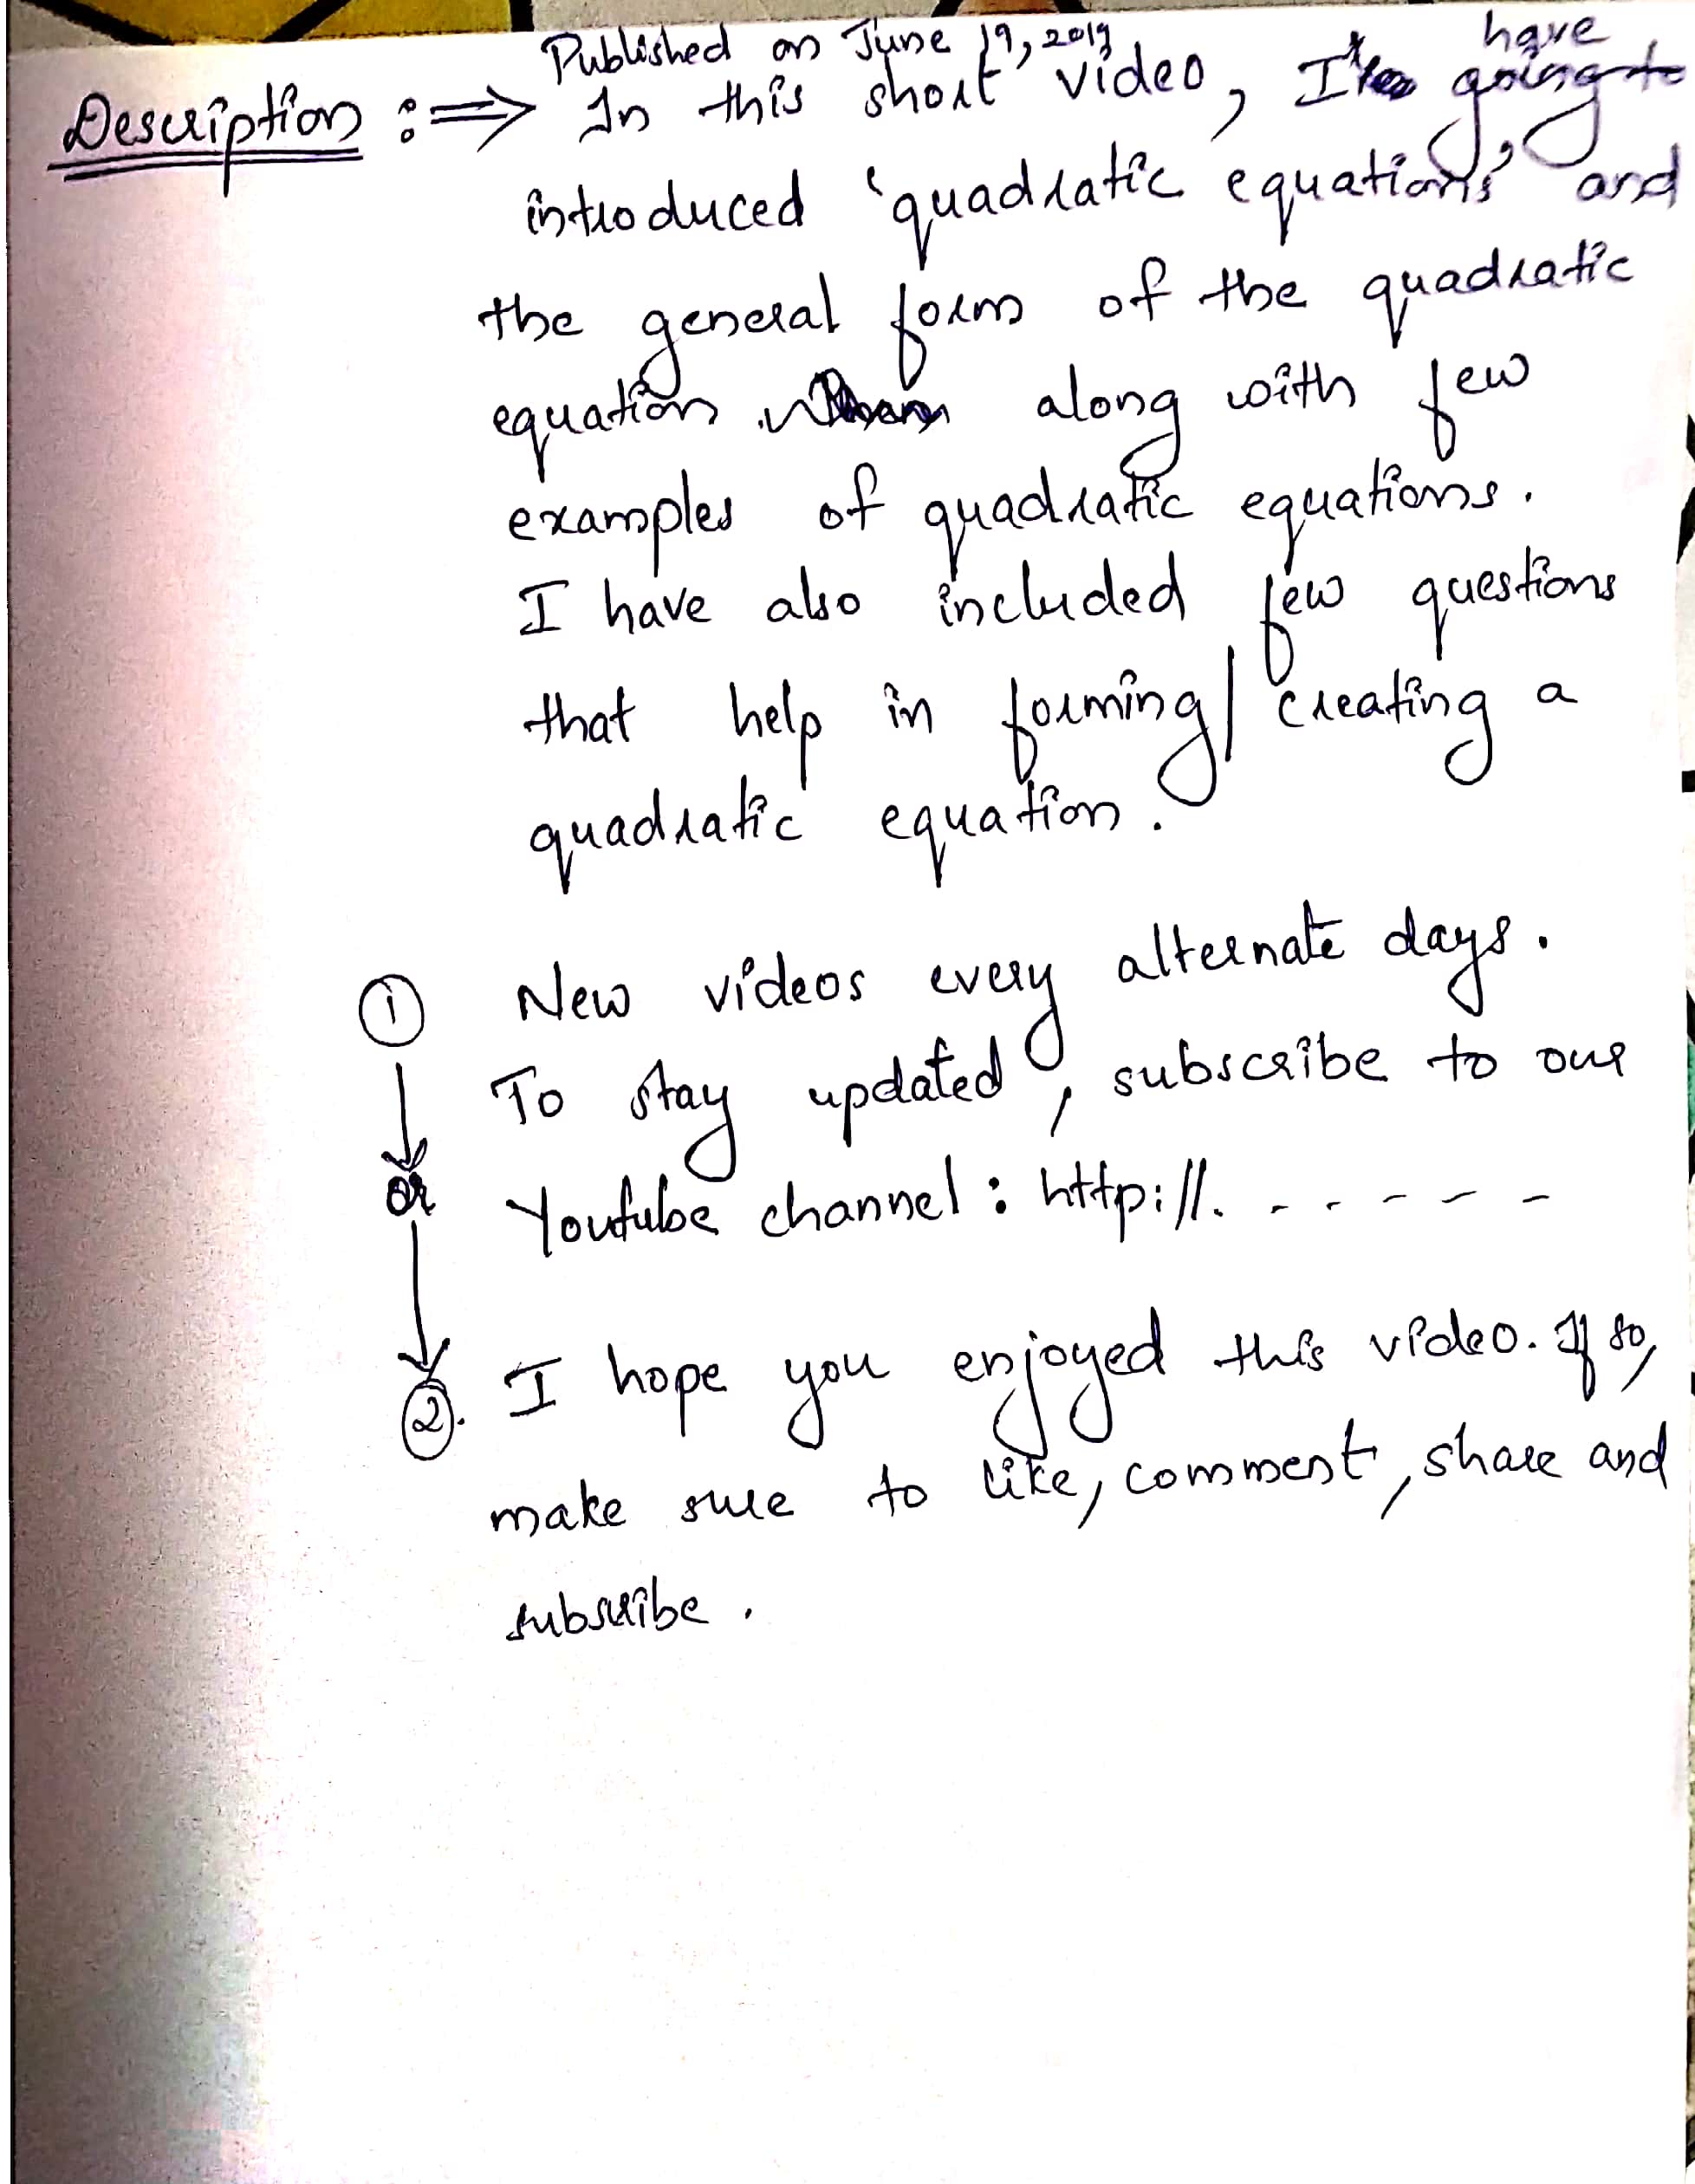 Published on June 19, 2019
Description :⇒ In this short video, I have going to
introduced 'quadratic equations' and
the general form of the quadratic
equation along with few
examples of quadratic equations.
I have also included few questions
that help in forming/creating a
quadratic equation.
① New videos every alternate days.
To stay updated, subscribe to our
or Youtube channel : http://. - - - - - -
②. I hope you enjoyed this video. If so,
make sure to like, comment, share and
subscribe.